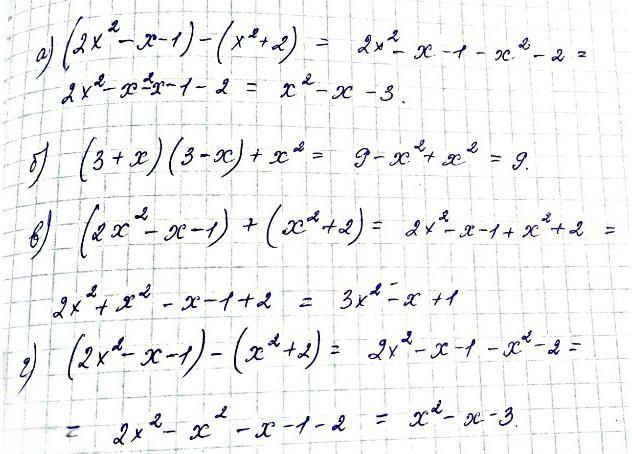 а) (2x² - x - 1) - (x² + 2) = 2x² - x - 1 - x² - 2 =
2x² - x² - x - 1 - 2 = x² - x - 3.
б) (3 + x)(3 - x) + x² = 9 - x² + x² = 9.
в) (2x² - x - 1) + (x² + 2) = 2x² - x - 1 + x² + 2 =
2x² + x² - x - 1 + 2 = 3x² - x + 1
г) (2x² - x - 1) - (x² + 2) = 2x² - x - 1 - x² - 2 =
= 2x² - x² - x - 1 - 2 = x² - x - 3.